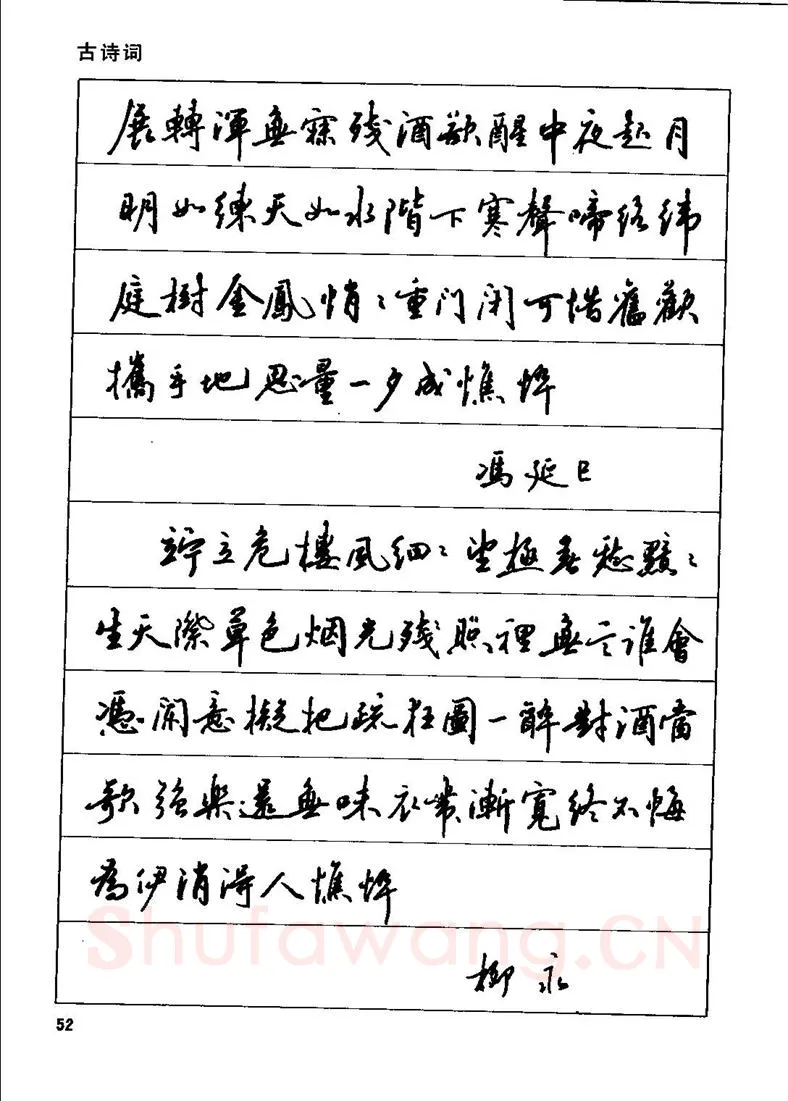 古诗词
展轉渾無寐殘酒欲醒中夜起月
明如練天如水階下寒聲啼絡緯
庭樹金風悄悄重門閉可惜舊歡
攜手地思量一夕成憔悴
馮延巳
竚立危樓風細細望極春愁黯黯
生天際草色烟光殘照裡無言誰會
憑闌意擬把疏狂圖一醉對酒當
歌強樂還無味衣帶漸寬終不悔
為伊消得人憔悴
柳永
Shufawang.CN
52